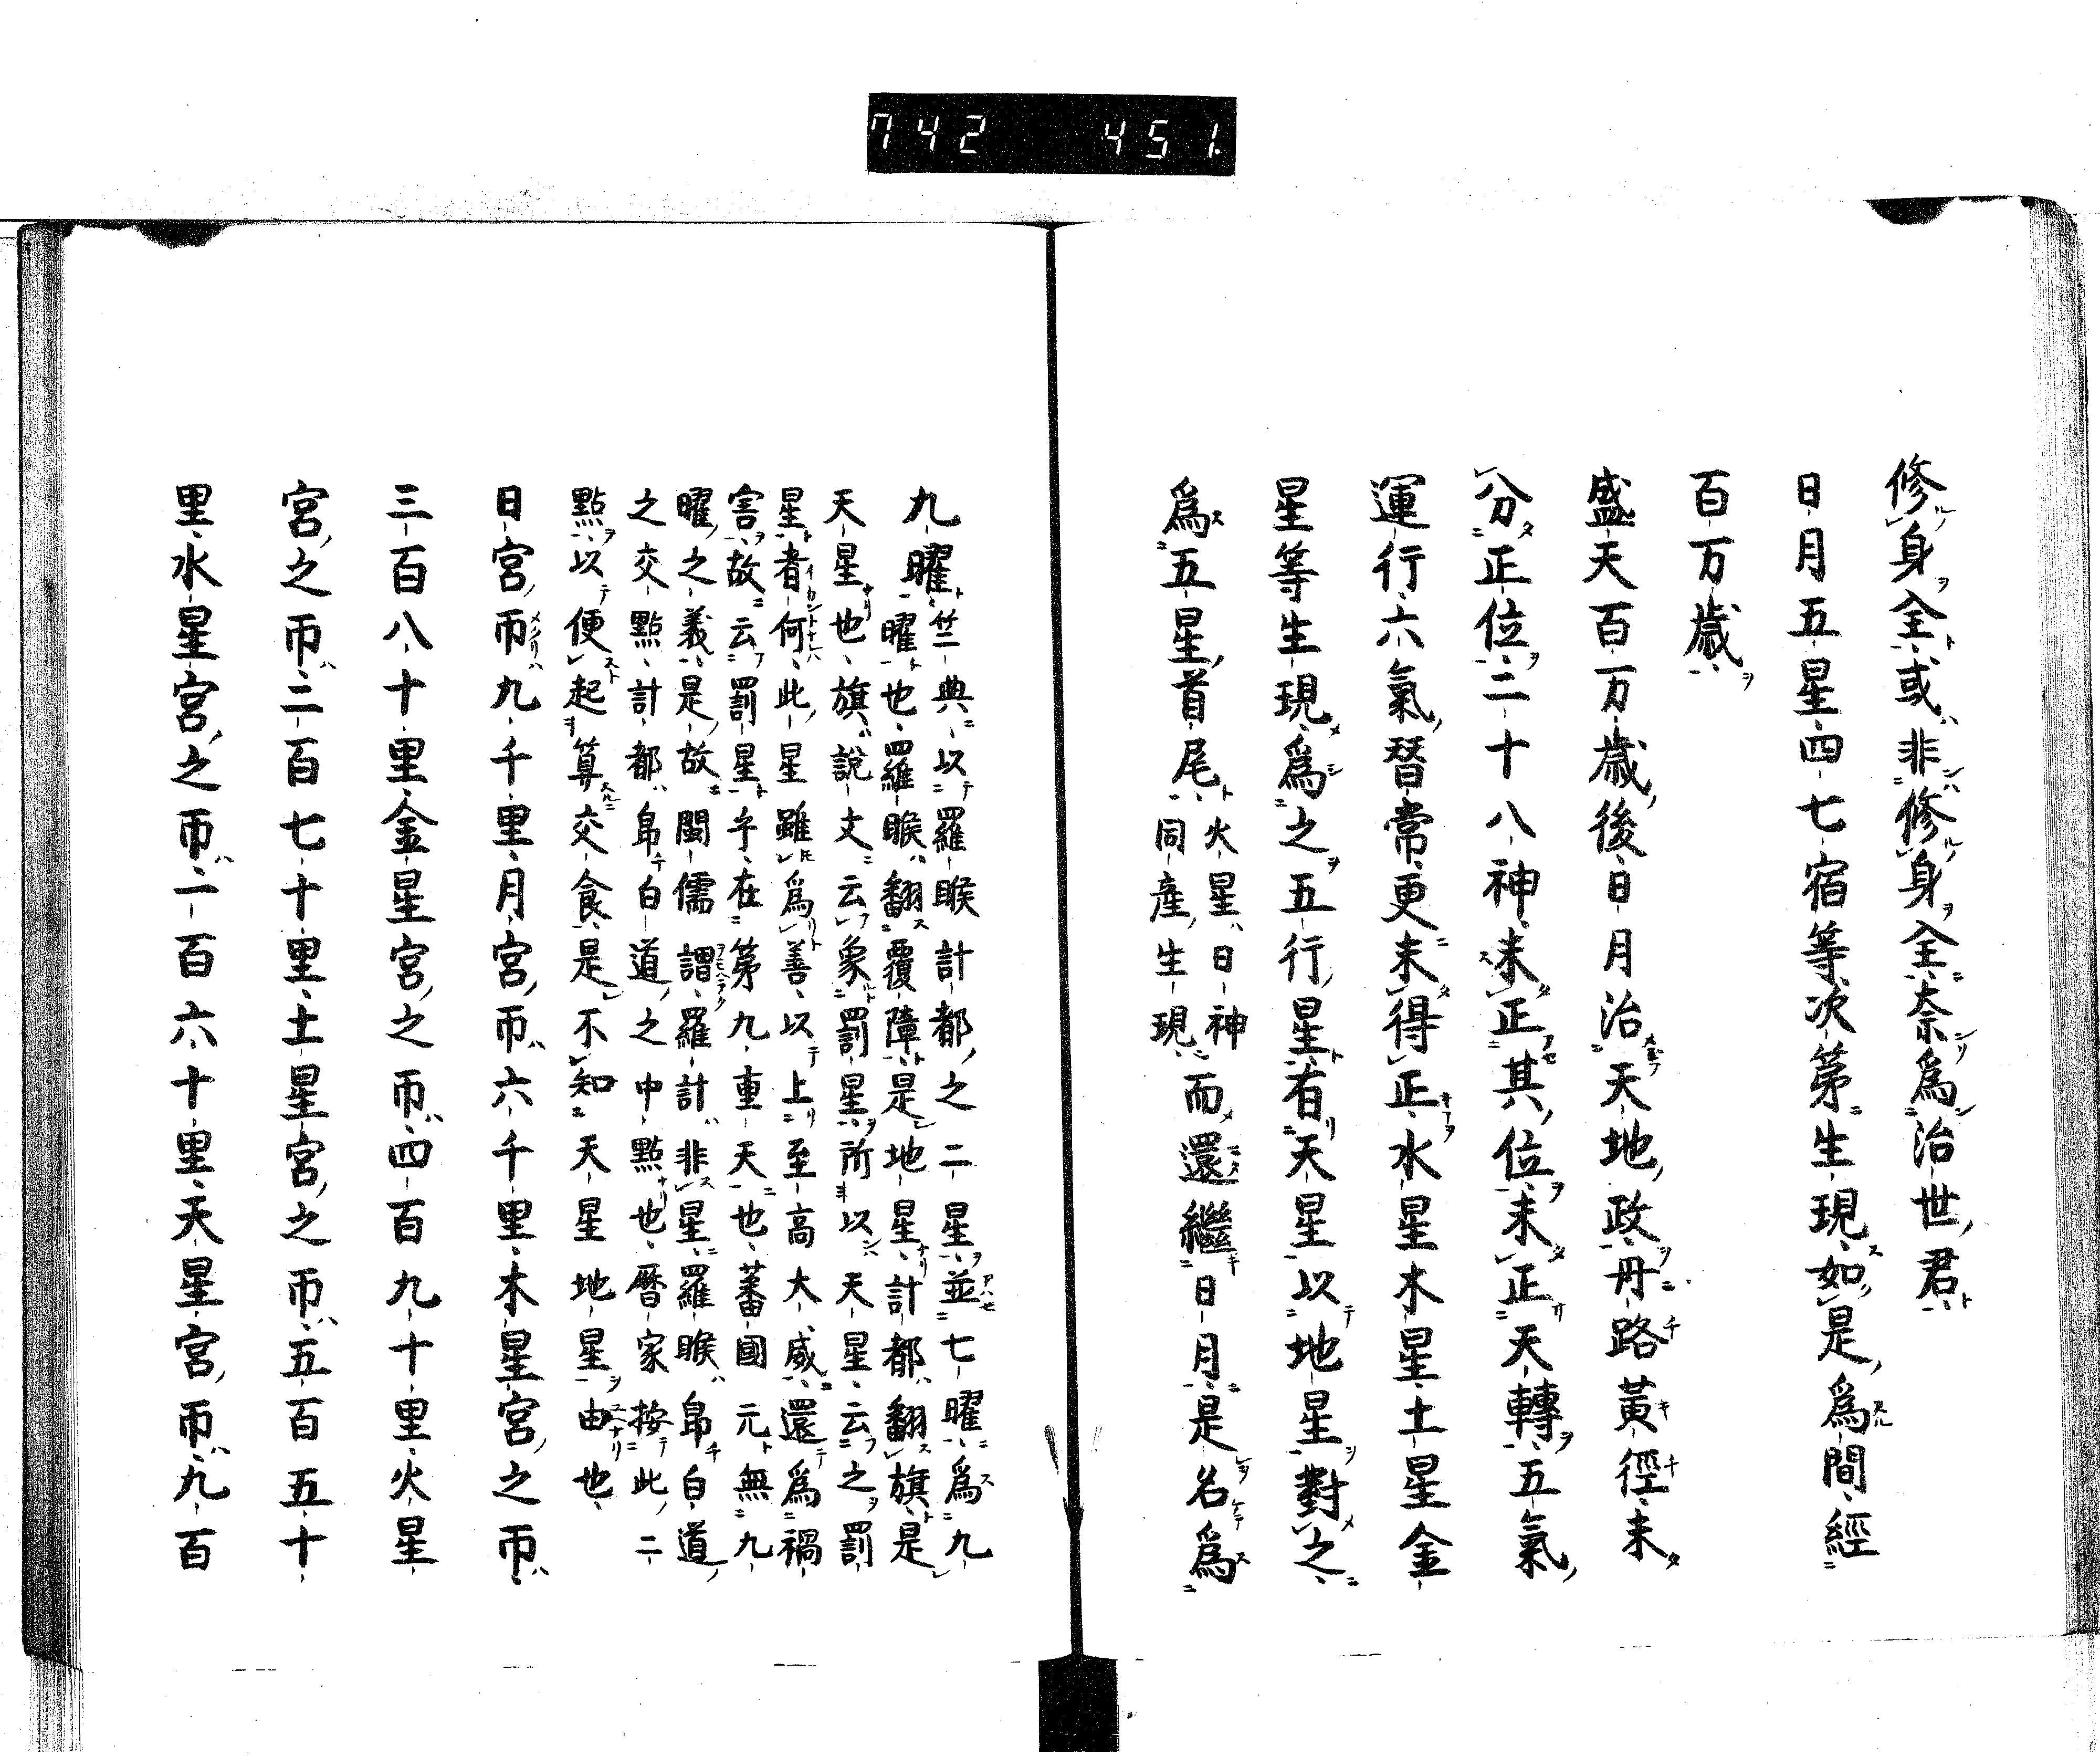 742 451
修身全或非修身全奈爲治世君
日月五星四七宿等次第生現如是爲間經
百万歳
盛天百万歳後日月治天地政丹路黃徑未
分正位二十八神未正其位未正天轉五氣
運行六氣晉常更未得正水星木星土星金
星等生現爲之五行星有天星以地星對之
爲五星首尾
火星日神
同産生現
而還繼日月是名爲
九曜
竺典以羅睺計都之二星並七曜爲九
曜也羅睺翻覆障是地星計都翻旗是
天星也旗說文云象罰星所以天星云之罰
星者何此星雖爲善以上至高大威還爲禍
害故云罰星乎在第九重天也蕃國元無九
曜之義是故閩儒謂羅計非星羅睺帛白道
之交點計都帛白道之中點也曆家按此二
點以便起算交食是不知天星地星由也
日宮帀九千里月宮帀六千里木星宮之帀
三百八十里金星宮之帀四百九十里火星
宮之帀二百七十里土星宮之帀五百五十
里水星宮之帀一百六十里天星宮帀九百